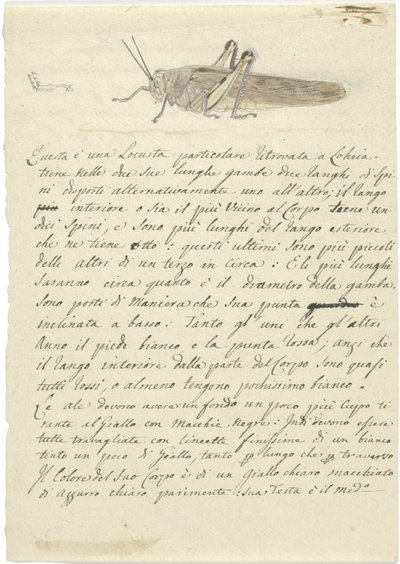 Questa è una Locusta particolare ritrovata a Loheia.
tiene nelle due sue lunghe gambe due ranghi di Spi
ni disposti alternativamente uno all'altro; il rango
interiore o sia il più vicino al Corpo tiene un
dici Spini, e sono più lunghi del rango esteriore
che ne tiene otto: questi ultimi sono più piccoli
delli altri di un terzo in circa: E li più lunghi
saranno circa quanto è il diametro della gamba.
Sono posti di Maniera che sua punta è
inclinata a basso: Tanto gl'uni che gl'altri
Anno il piede bianco e la punta rossa; anzi che
il rango interiore dalla parte del Corpo sono quasi
tutti rossi, o almeno tengono pochissimo bianco.
Le ale devono avere un fondo un poco più Cupo ti
rante al Giallo con Macchie Negre: Indi devono essere
tutte travagliate con lineette finissime di un bianco
tinto un poco di Giallo, tanto p lungo che p traverso
Il Colore del suo Corpo è di un Giallo chiaro macchiato
di Azzurro chiaro parimente: sua Testa è il medº